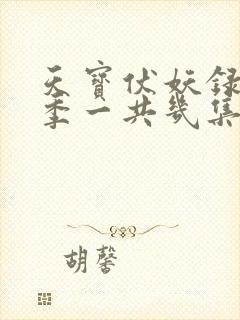 天寶伏妖録
季一共幾集
胡馨